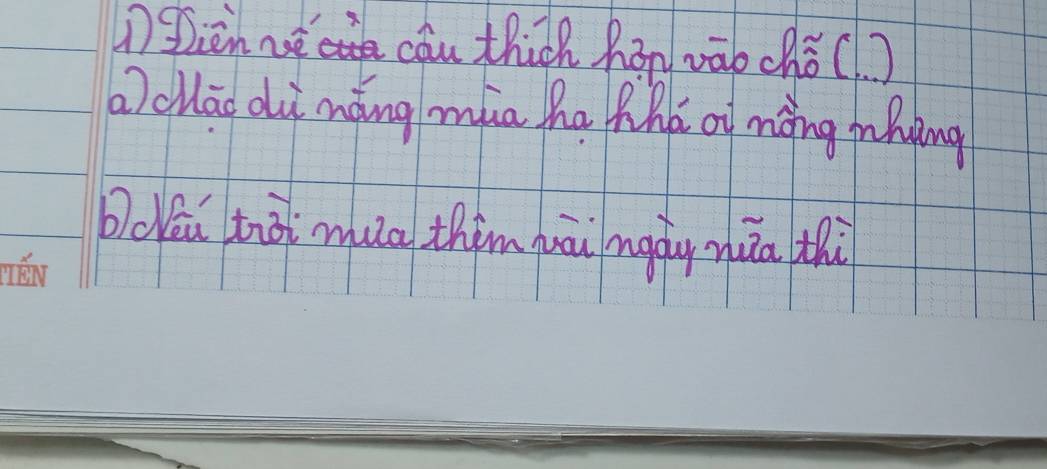 1) Điền vế của câu thích hợp vào chỗ (...)
a) Mặc dù nắng mùa hạ khá oi nồng nhưng
b) Nếu trời mưa thêm vài ngày nữa thì
TIẾN